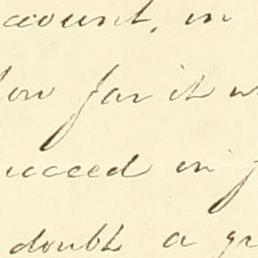 ccount, in
how far it w
ucceed in f
double a gr